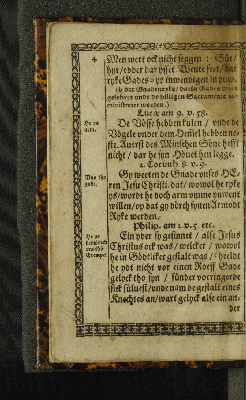 4
Men wert ock nicht seggen : Süe/
hyr/edder dar ysset. Wente seet/dat
ryke Gades ys inwendigen in yuw.
(b dat Gnadenryke/ darin Gades wort
geleret unde de hilligen Sacramente ad-
ministreret werden.)
Luc. am 9. v. 58.
De Vösse hebben kulen / unde de
Vögele under dem Hemel hebben ne-
ste. Averst des Minschen Söne hefft
nicht / dar he syn Hövet hen legge.
2. Corinth 8. v. 9.
Gy weeten de Gnade unses HE-
ren Jesu Christi. dat/ wowol he ryke
ys/wordt he doch arm umme yuwent
willen/up dat gy dörch synen Armodt
Ryke werden.
Philip. am 2 v. 5. etc.
Ein yder sy gesinnet / alse Jesus
Christus ock was/ welcker / wowol
he in Gödtliker gestalt was /
he ydt nicht vor einen Roeff Gade
gelyck tho syn / sünder vorringerde
sick sülvest/unde nam de gestalt eines
Knechtes an/wart gelyck alse ein an-
der